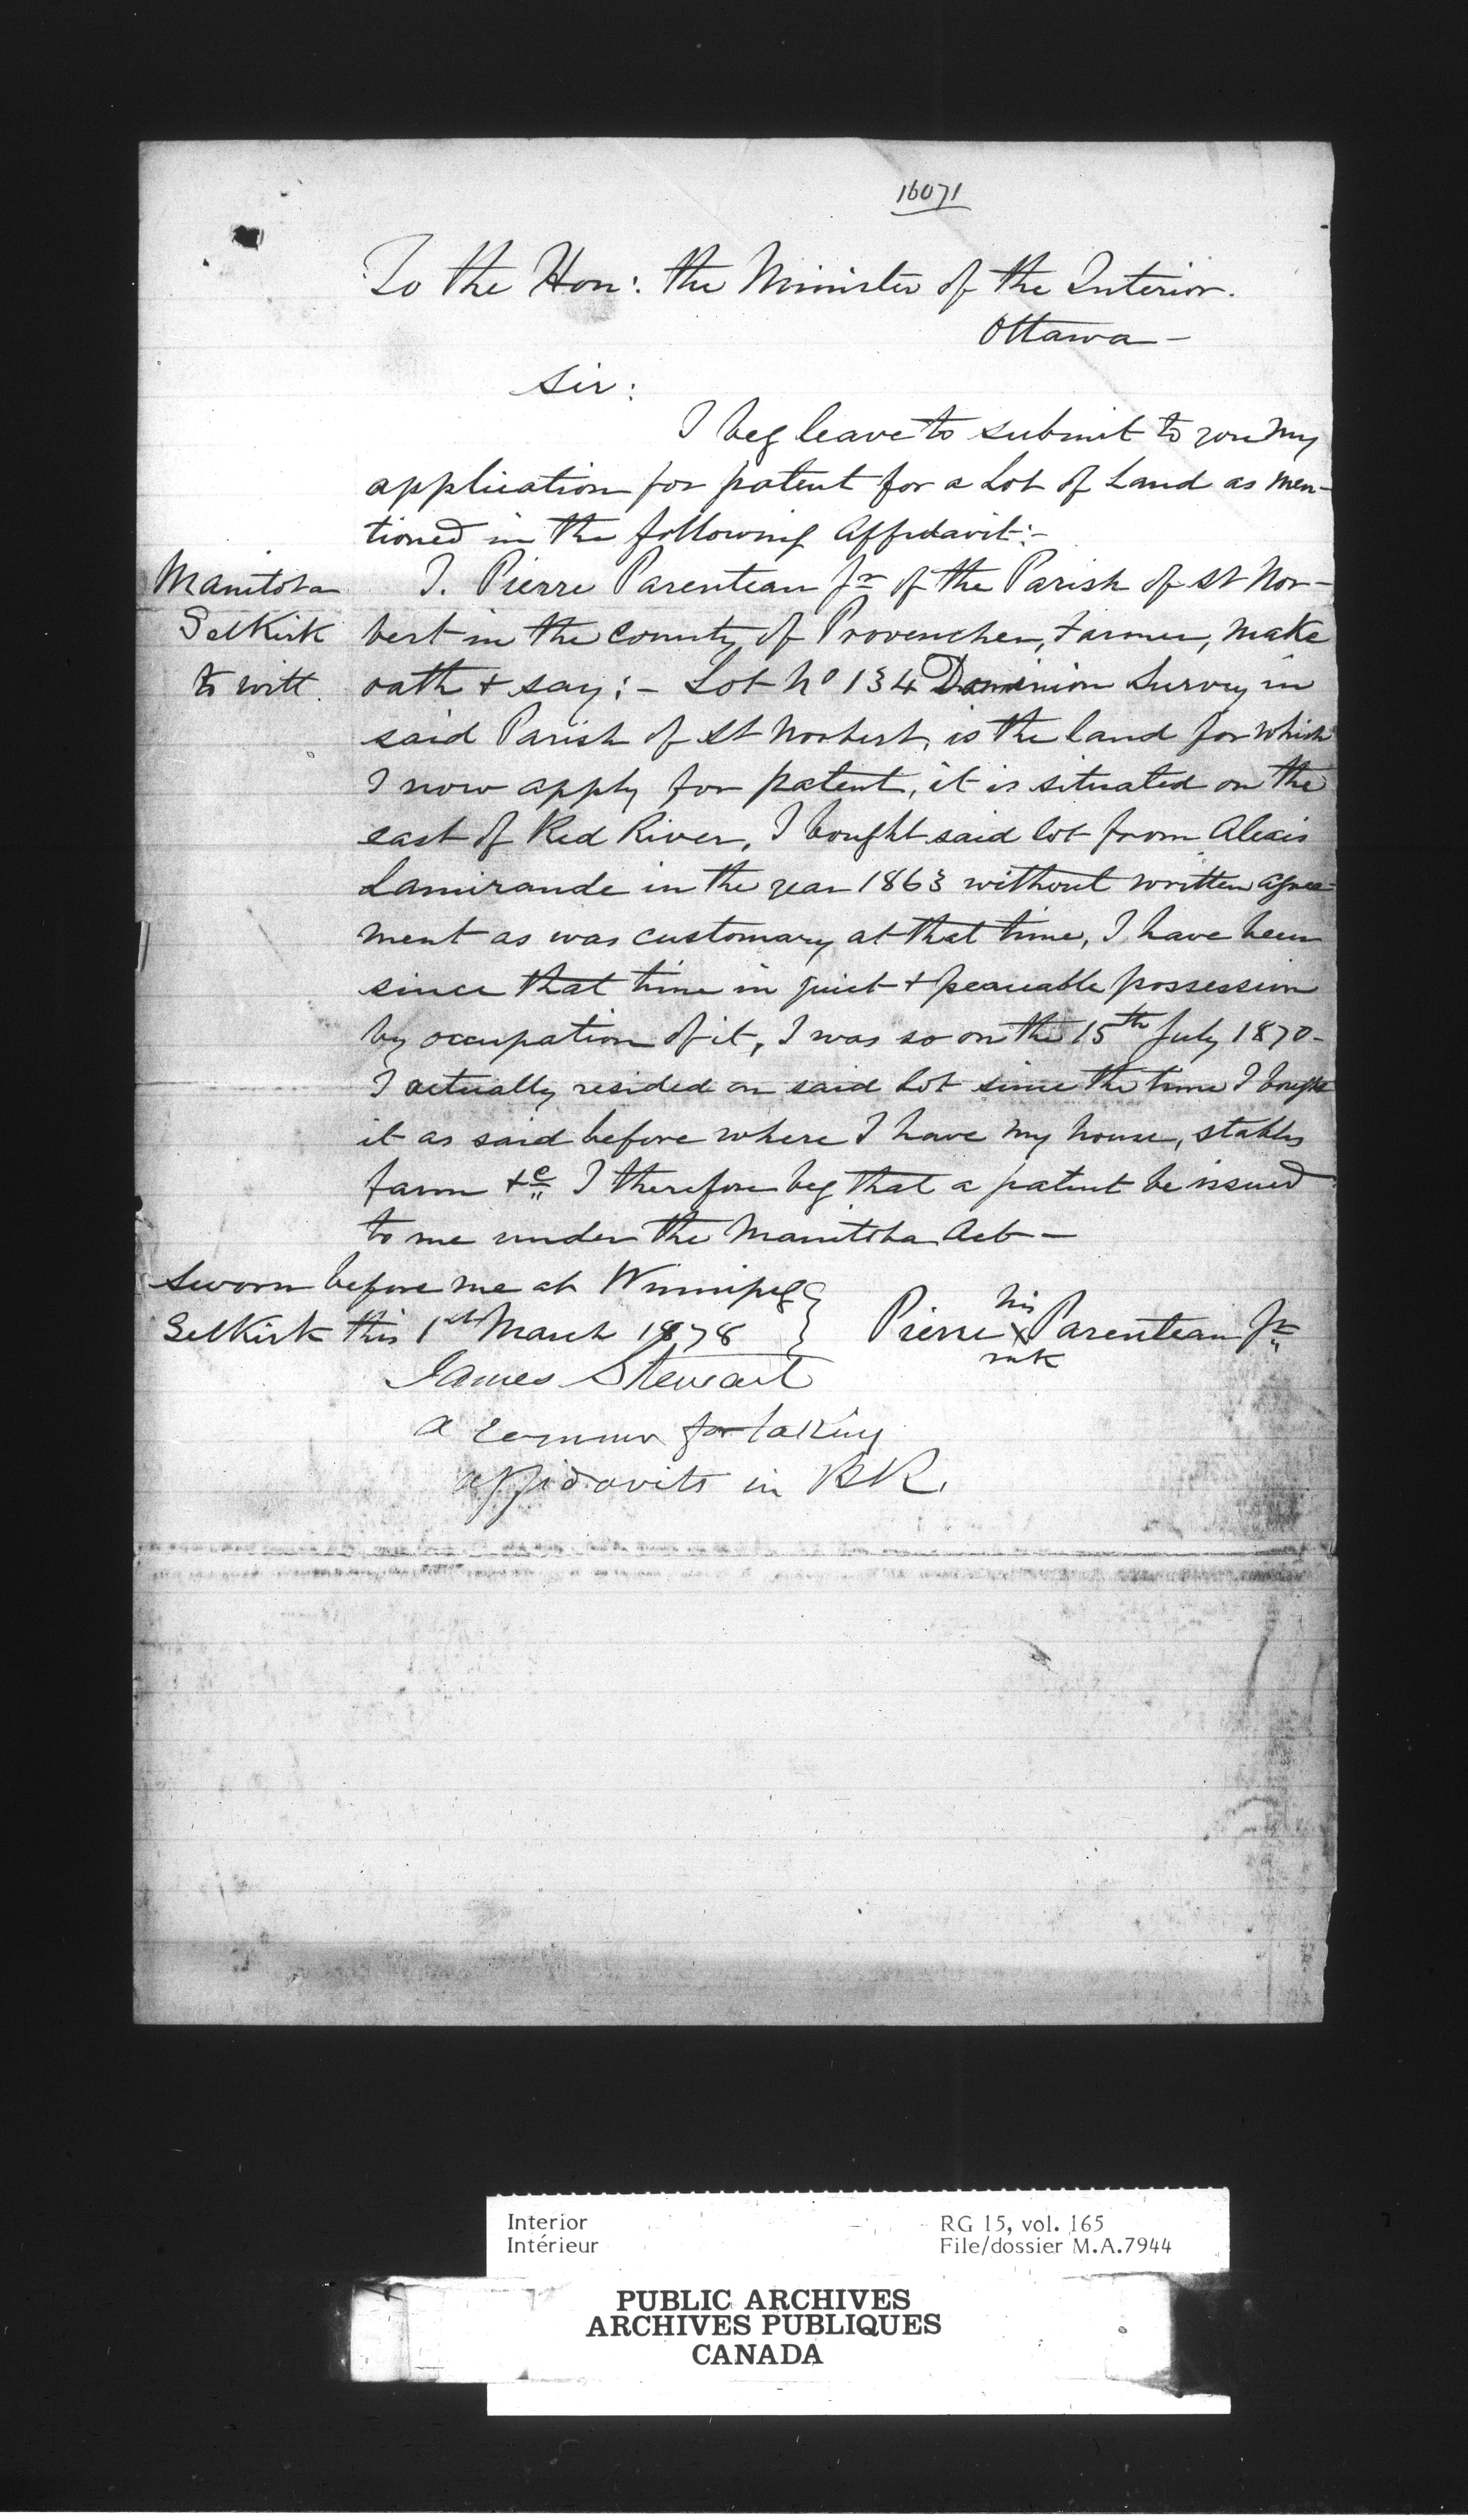 16071
To the Hon: the Minister of the Interior.
Ottawa -
Sir:
I beg leave to submit to you my
application for patent for a Lot of Land as men-
tioned in the following Affidavit:-
Manitoba I. Pierre Parenteau Jr of the Parish of St Nor-
Selkirk bert in the County of Provencher, Farmer, make
to witt. oath + say: - Lot No 134 Dominion Survey in
said Parish of St Norbert, is the land for which
I now apply for patent, it is situated on the
east of Red River, I bought said lot from Alexis
Lamirande in the year 1863 without written agree-
ment as was customary at that time, I have been
since that time in quiet + peaceable possession
by occupation of it, I was so on the 15th July 1870 -
I actually resided on said lot since the time I bought
it as said before where I have my house, stables
farm +c I therefore beg that a patent be issued
to me under the Manitoba Act -
Sworn before me at Winnipeg
Selkirk this 1st March 1878
his
Pierre X Parenteau Jr
mk
James Stewart
a commr for taking
affidavits in BR.
Interior RG 15, vol. 165
Intérieur File/dossier M.A.7944
PUBLIC ARCHIVES
ARCHIVES PUBLIQUES
CANADA